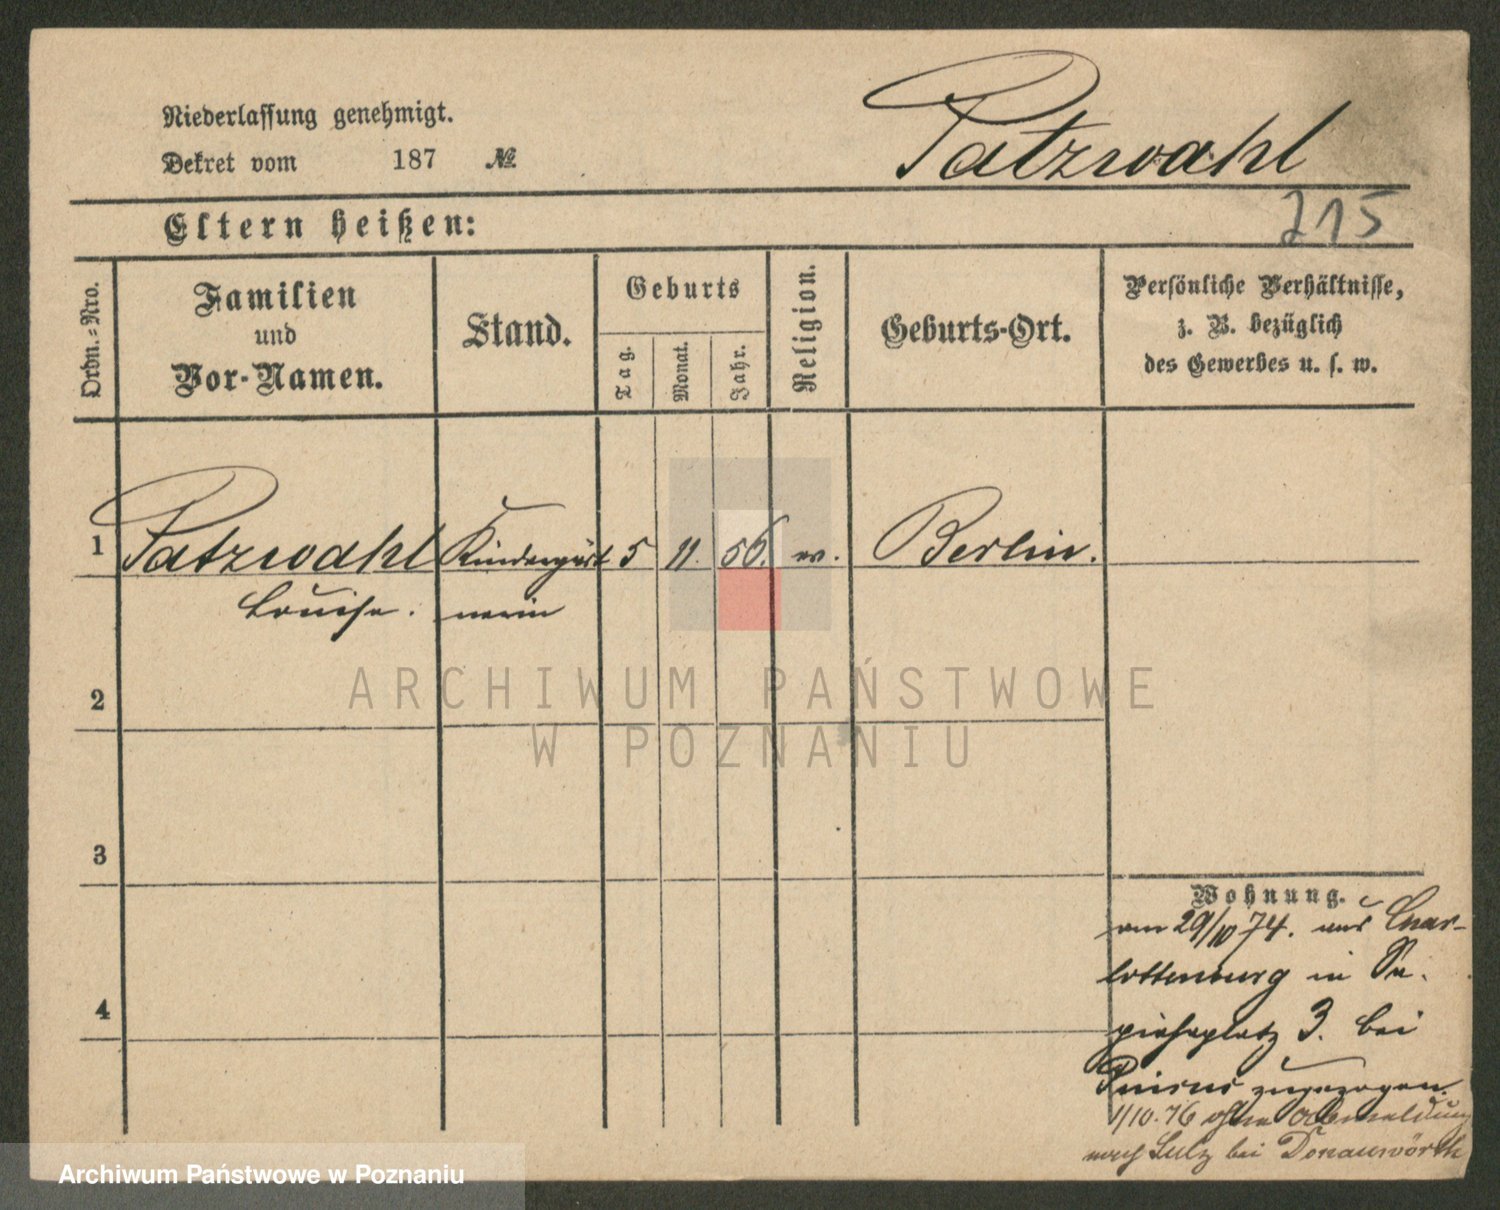 Niederlassung genehmigt.
Dekret vom 187 №
Patzwahl
215
Eltern heißen:
Ordn.=Nro.
Familien
und
Vor-Namen.
Stand.
Geburts
Tag.
Monat.
Jahr.
Religion.
Geburts-Ort.
Persönliche Verhältnisse,
z. B. bezüglich
des Gewerbes u. s. w.
1 Patzwahl Kindergärt 5 11. 56. ev. Berlin.
Louise. nerin
2
3
4
Wohnung.
am 29/10 74. aus Char-
lottenburg in Sa-
piehaplatz 3. bei
zugezogen.
1/10.76 ohne Abmeldung
nach Sulz bei Donauwörth
ARCHIWUM PAŃSTWOWE
W POZNANIU
Archiwum Państwowe w Poznaniu